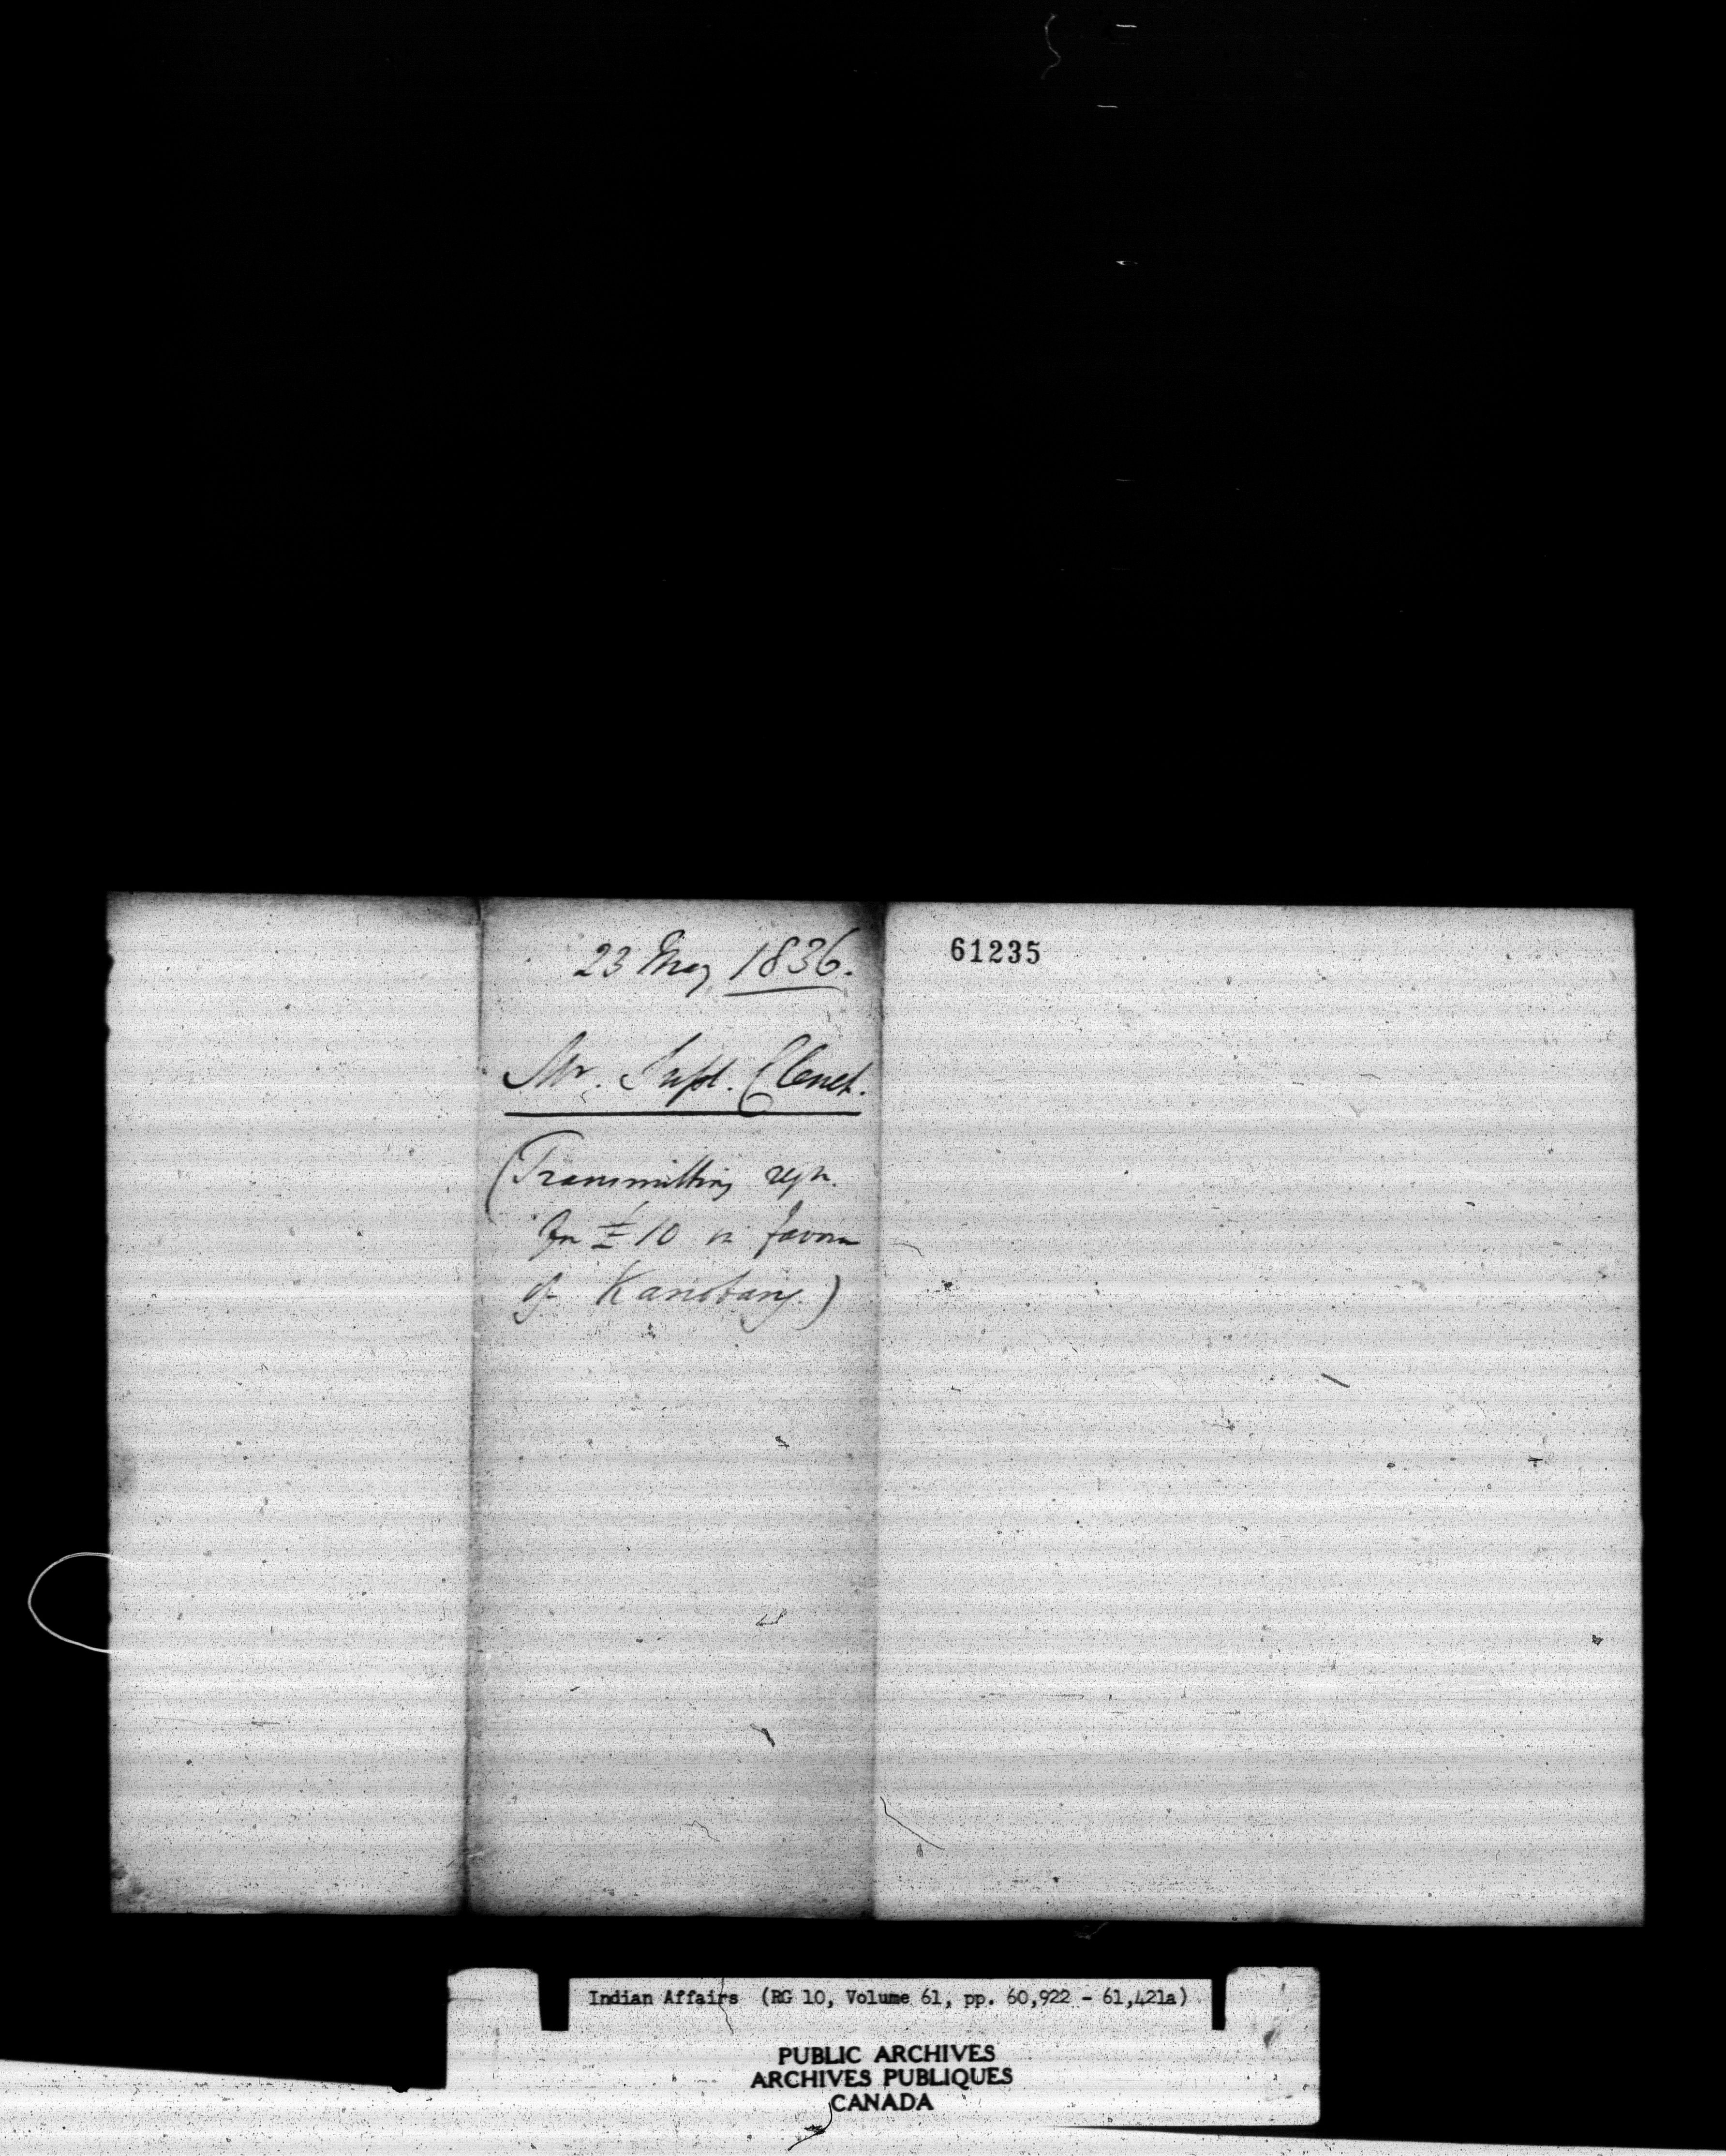 23 May 1836.
61235
Mr. Supt. Clench.
(Transmitting reqn.
for £10 in favour
of Kanotang.)
Indian Affairs (RG 10, Volume 61, pp. 60,922 - 61,421a)
PUBLIC ARCHIVES
ARCHIVES PUBLIQUES
CANADA